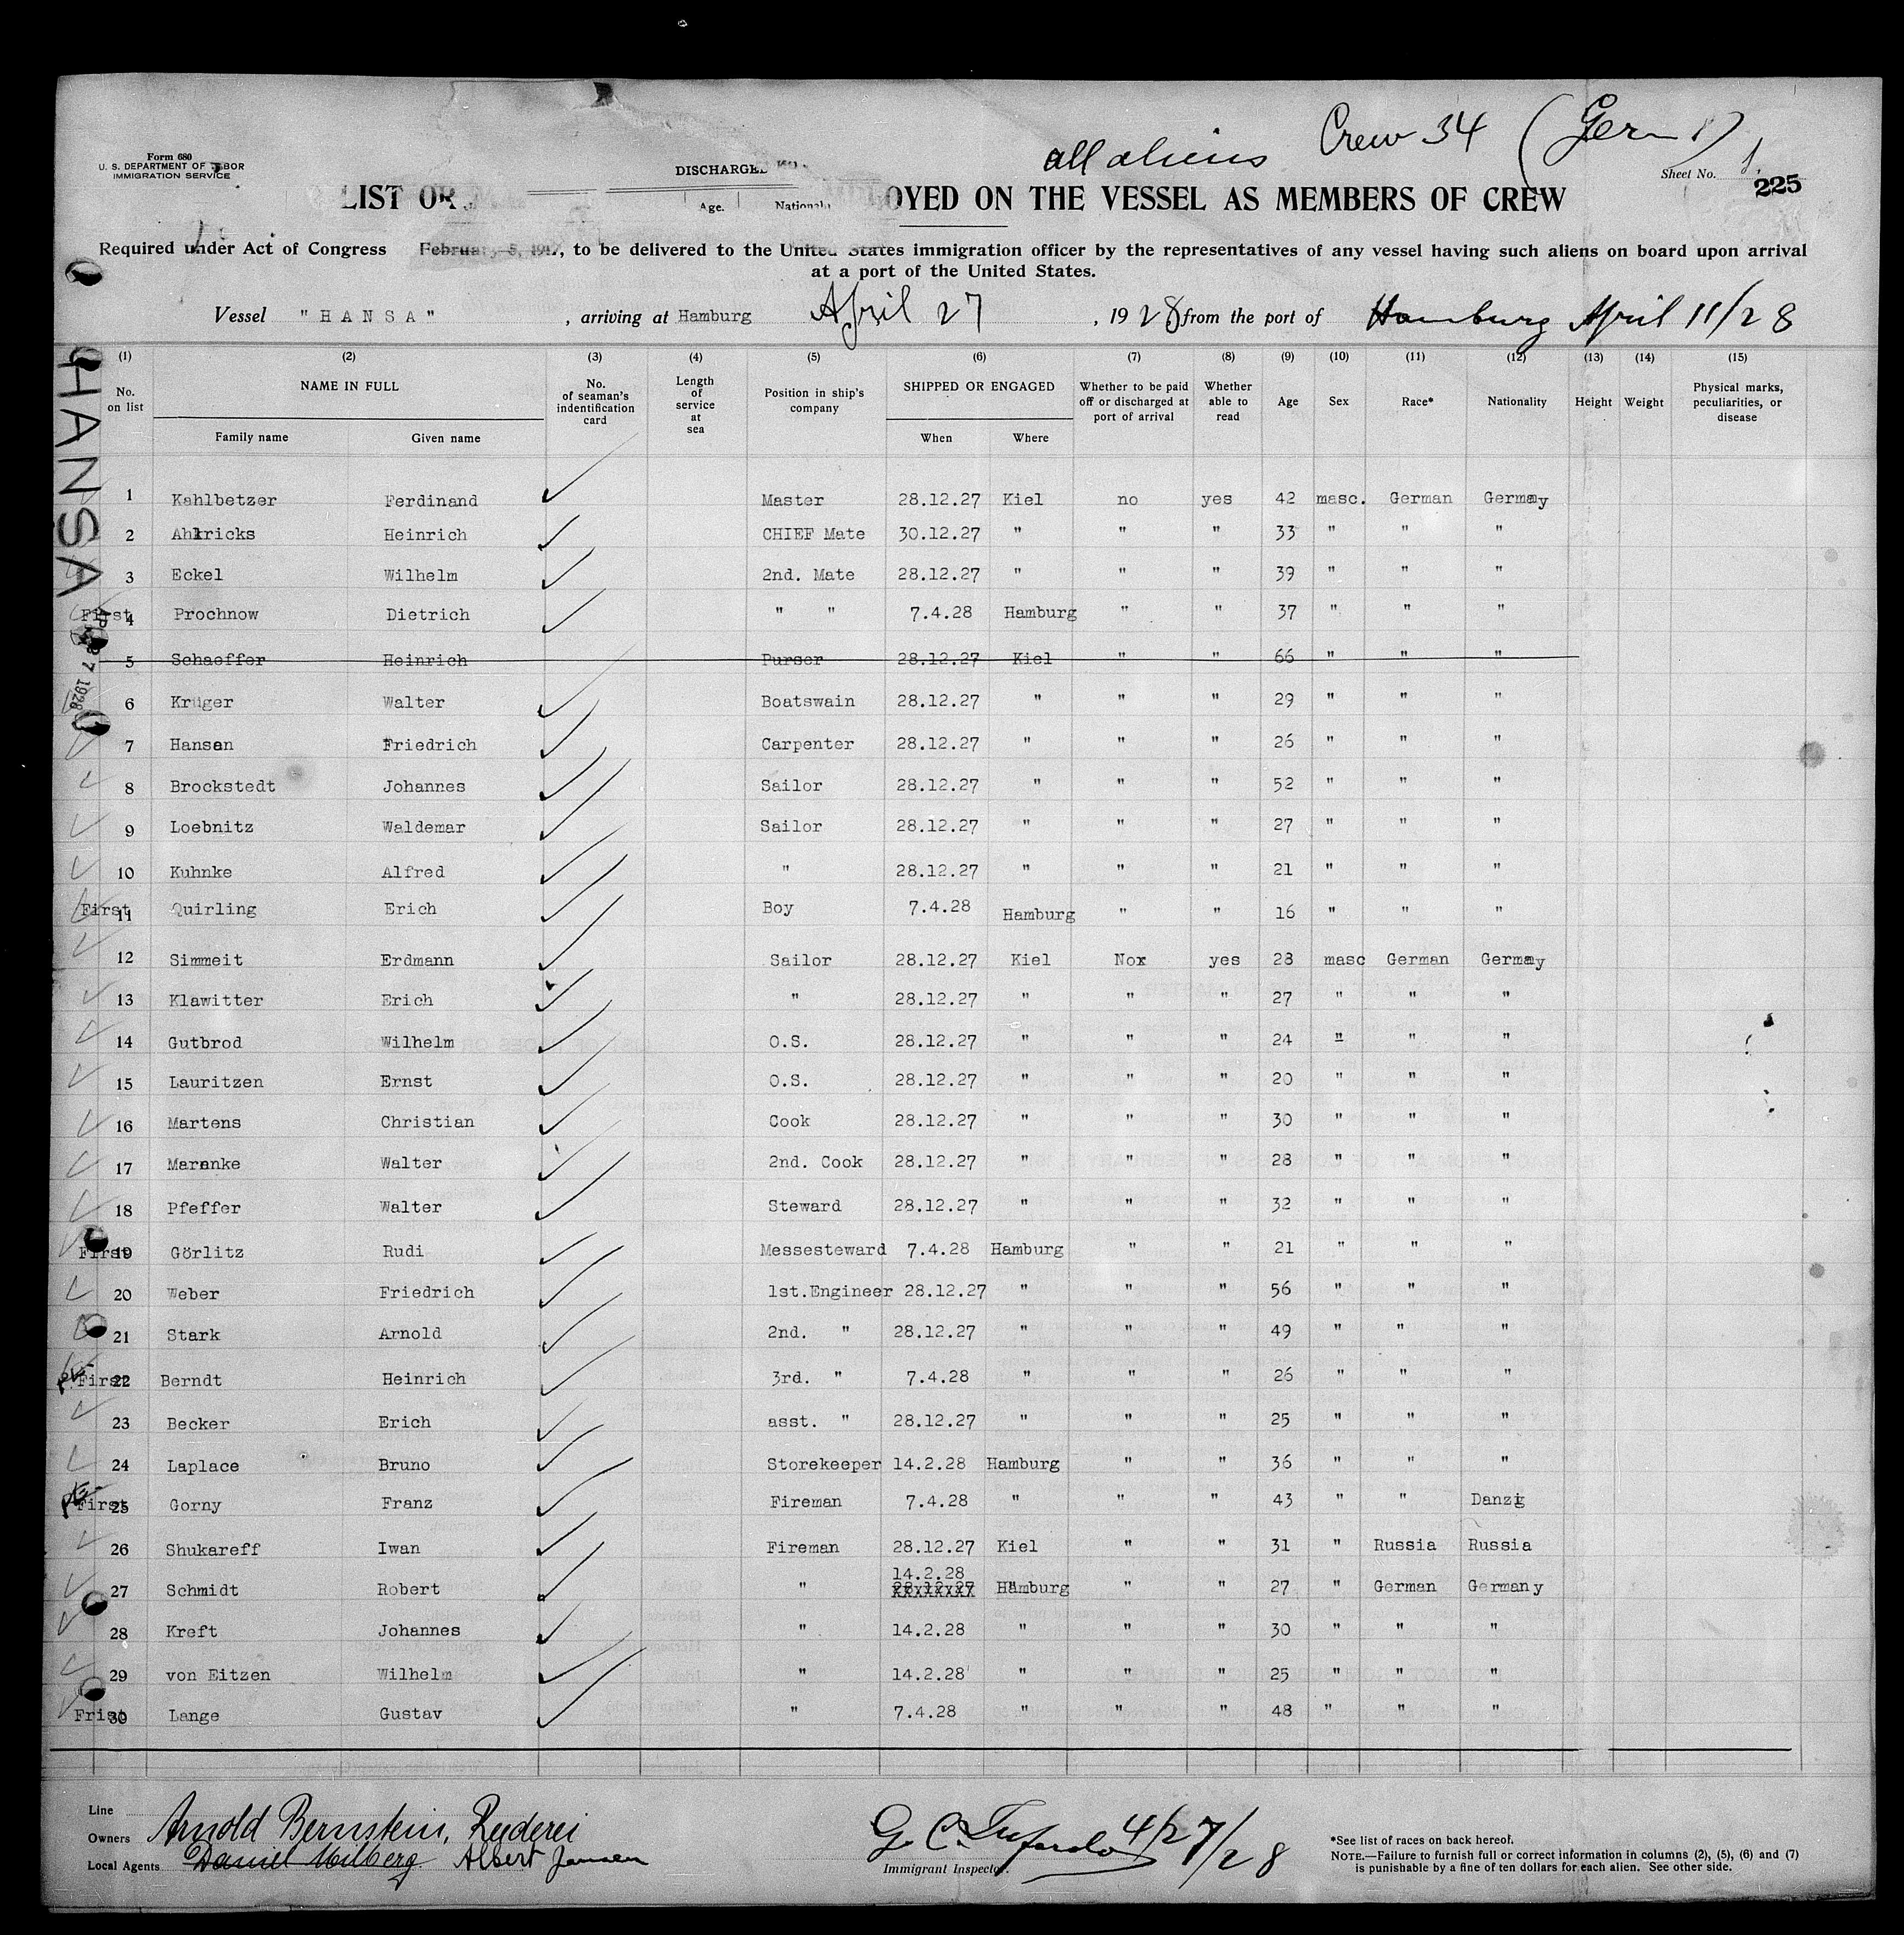 all aliens Crew 34 (Ger 1)
Form 680
U. S. DEPARTMENT OF LABOR
IMMIGRATION SERVICE
DISCHARGED
Sheet No. 1.
225
LIST OR
Age. Nationali
OYED ON THE VESSEL AS MEMBERS OF CREW
Required under Act of Congress February 5, 1917, to be delivered to the United States immigration officer by the representatives of any vessel having such aliens on board upon arrival
at a port of the United States.
Vessel "HANSA" , arriving at Hamburg April 27 , 1928 from the port of Hamburg April 11/28
HANSA
APR 27 1928
(1) (2) (3) (4) (5) (6) (7) (8) (9) (10) (11) (12) (13) (14) (15)
No. on list NAME IN FULL Family name Given name No. of seaman's indentification card Length of service at sea Position in ship's company SHIPPED OR ENGAGED When Where Whether to be paid off or discharged at port of arrival Whether able to read Age Sex Race* Nationality Height Weight Physical marks, peculiarities, or disease
1 Kahlbetzer Ferdinand Master 28.12.27 Kiel no yes 42 masc. German Germany
2 Ahlricks Heinrich CHIEF Mate 30.12.27 " " " 33 " " "
3 Eckel Wilhelm 2nd. Mate 28.12.27 " " " 39 " " "
First 4 Prochnow Dietrich " " 7.4.28 Hamburg " " 37 " " "
5 Schaeffer Heinrich Purser 28.12.27 Kiel " " 66 " " "
6 Krüger Walter Boatswain 28.12.27 " " " 29 " " "
7 Hansen Friedrich Carpenter 28.12.27 " " " 26 " " "
8 Brockstedt Johannes Sailor 28.12.27 " " " 52 " " "
9 Loebnitz Waldemar Sailor 28.12.27 " " " 27 " " "
10 Kuhnke Alfred " 28.12.27 " " " 21 " " "
First 11 Quirling Erich Boy 7.4.28 Hamburg " " 16 " " "
12 Simmeit Erdmann Sailor 28.12.27 Kiel Nox yes 28 masc German Germany
13 Klawitter Erich " 28.12.27 " " " 27 " " "
14 Gutbrod Wilhelm O.S. 28.12.27 " " " 24 " " "
15 Lauritzen Ernst O.S. 28.12.27 " " " 20 " " "
16 Martens Christian Cook 28.12.27 " " " 30 " " "
17 Maranke Walter 2nd. Cook 28.12.27 " " " 28 " " "
18 Pfeffer Walter Steward 28.12.27 " " " 32 " " "
First 19 Görlitz Rudi Messesteward 7.4.28 Hamburg " " 21 " " "
20 Weber Friedrich 1st.Engineer 28.12.27 " " " 56 " " "
21 Stark Arnold 2nd. " 28.12.27 " " " 49 " " "
First 22 Berndt Heinrich 3rd. " 7.4.28 " " " 26 " " "
23 Becker Erich asst. " 28.12.27 " " " 25 " " "
24 Laplace Bruno Storekeeper 14.2.28 Hamburg " " 36 " " "
First 25 Gorny Franz Fireman 7.4.28 " " " 43 " " Danzig
26 Shukareff Iwan Fireman 28.12.27 Kiel " " 31 " Russia Russia
14.2.28
27 Schmidt Robert " 28.12.27 Hamburg " " 27 " German Germany
28 Kreft Johannes " 14.2.28 " " " 30 " " "
29 von Eitzen Wilhelm " 14.2.28 " " " 25 " " "
Frist 30 Lange Gustav " 7.4.28 " " " 48 " " "
Line
Owners Arnold Bernstein, Reederei
Local Agents Daniel Milberg Albert Jansen
G. C. 4/27/28
Immigrant Inspector.
*See list of races on back hereof.
NOTE.—Failure to furnish full or correct information in columns (2), (5), (6) and (7)
is punishable by a fine of ten dollars for each alien. See other side.